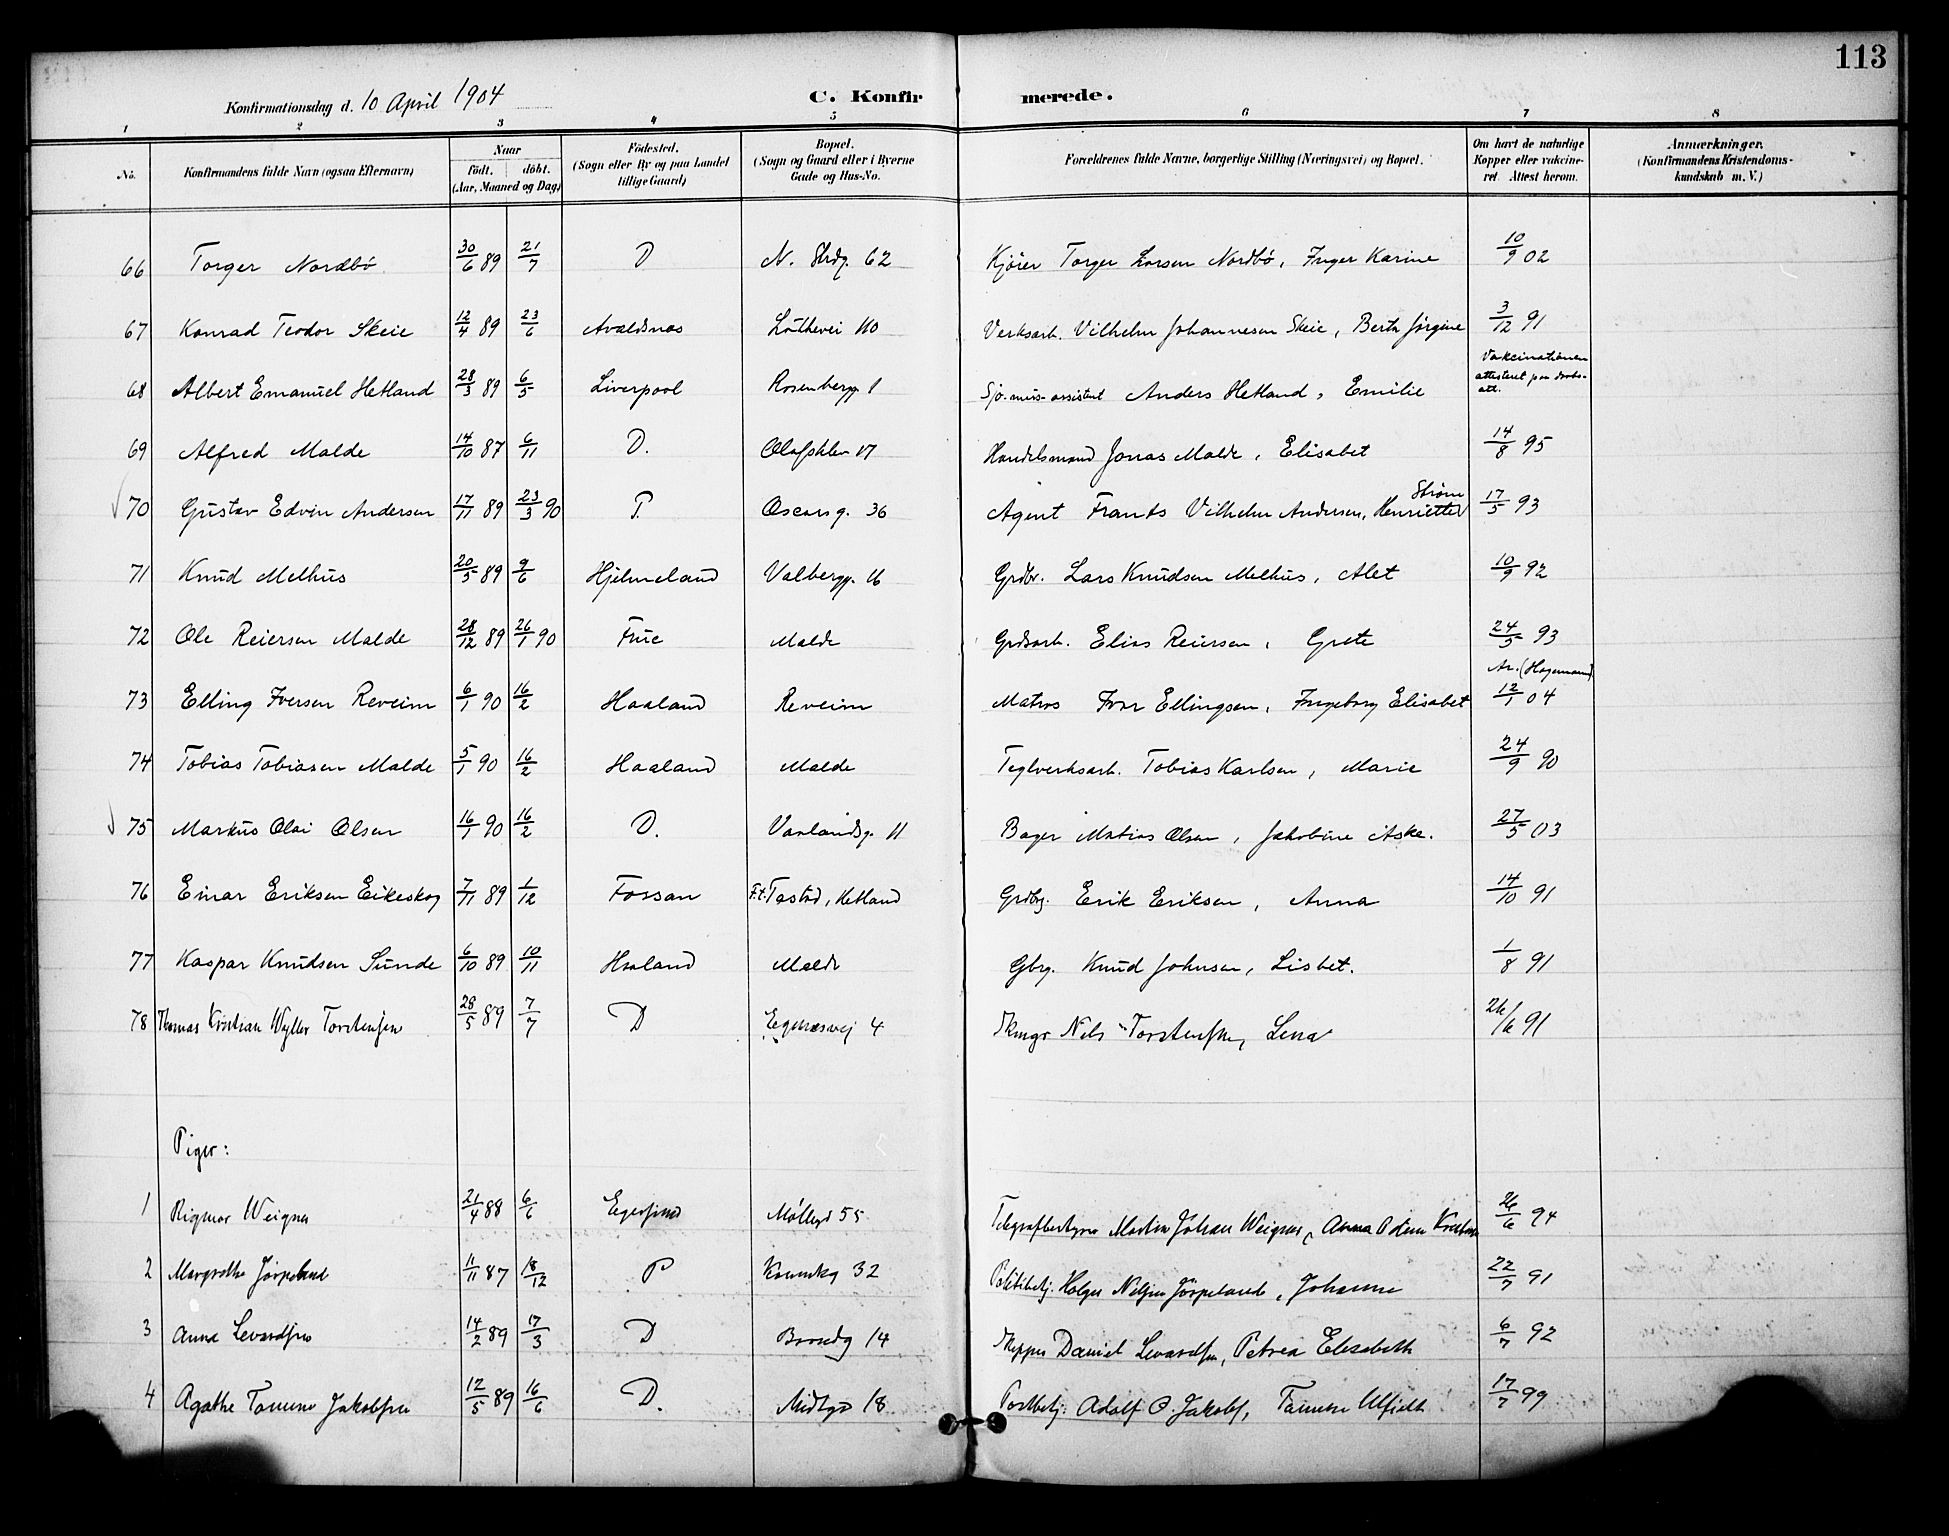 113
Konfirmationsdag d. 10 April 1904 C. Konfirmerede.
1 2 3 4 5 6 7 8
No. Konfirmandens fulde Navn (ogsaa Efternavn) Naar födt. döbt. (Aar, Maaned og Dag) Födested. (Sogn eller By og paa Landet tillige Gaard) Bopæl. (Sogn og Gaard eller i Byerne Gade og Hus-No. Forældrenes fulde Navne, borgerlige Stilling (Næringsvei) og Bopæl. Om havt de naturlige Kopper eller vakcineret. Attest herom. Anmærkninger. (Konfirmandens Kristendomskundskab m. V.)
66 Torger Nordbö 30/6 89 21/7 D N. Strdg. 62 Torger Larsen Nordbö, Inger Karine 10/9 02
67 Konrad Teodor Skeie 12/4 89 23/6 Avaldsnes 110 Verksarb. Vilhelm Johannesen Skeie, Berta Jörgine 3/12 91
68 Albert Emanuel Hetland 28/3 89 6/5 Liverpool Rosenbergg. 1 Sjø.mis-assistent Anders Hetland, Emilie Vakcinationen attesteret paa daabs-att.
69 Alfred Malde 14/10 87 6/11 D. Olafsklev 17 Handelsmand Jonas Malde, Elisabet 14/8 95
70 Gustav Edvin Andersen 17/11 89 23/3 90 P. Oscarsg. 36 Agent Frants Vilhelm Andersen, Henriette Ström 17/5 93
71 Knud Melhus 20/5 89 9/6 Hjelmeland Valbergg. 16 Grdbr. Lars Knudsen Melhus, Alet 10/9 92
72 Ole Reiersen Malde 28/12 89 26/1 90 Frue Malde Grdsarb. Elias Reiersen, Grete 24/5 93
73 Elling Iversen Reveim 6/1 90 16/2 Haaland Reveim Matros Ivar Ellingsen, Ingeborg Elisabet 12/1 04
74 Tobias Tobiasen Malde 5/1 90 16/2 Haaland Malde Teglverksarb. Tobias Karlsen, Marie 24/9 90
75 Markus Olai Olsen 16/1 90 16/2 D. Vaalandsg. 11 Bager Matias Olsen, Jakobine Aske. 27/5 03
76 Einar Eriksen Eikeskog 7/11 89 1/12 Fossan F.t. Tastad, Hetland Grdbg. Erik Eriksen, Anna 14/10 91
77 Kaspar Knudsen Sunde 6/10 89 10/11 Haaland Malde Gbg. Knud Johnsen, Lisbet. 1/8 91
78 Thomas Kristian Wyller Torstensen 28/5 89 7/7 D Egenesvej 4 Nils Torstensen, Lena 26/6 91
Piger:
1 Rigmor Weigner 21/4 88 6/6 Egersund Møllegd 55 Telegrafbestyrer Martin Johan Weigner, Anna 26/6 94
2 Margrethe Jörpeland 11/11 87 18/12 P 32 Politibetj. Holger Nilsen Jörpeland, Johanne 22/7 91
3 Anna Levardsen 14/2 89 17/3 D 14 Skipper Daniel Levardsen, Petrea Elisabeth 6/7 92
4 Agathe Jakobsen 12/5 89 16/6 D. 18 Postbetj. Adolf Jakobs, 17/7 99